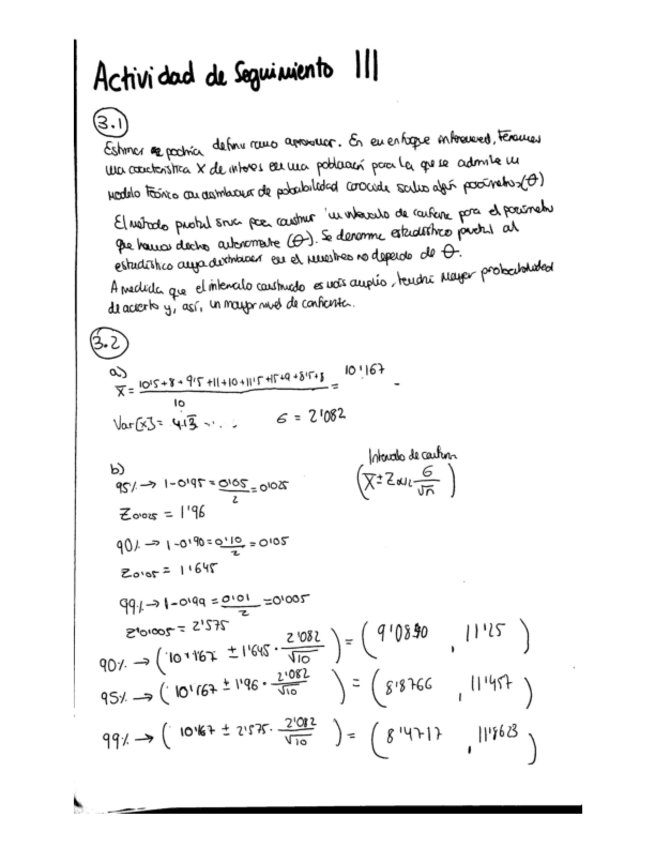 Actividad de Seguimiento III
3.1
Estimar se podría definir como aproximar. En su enfoque inferencial, tenemos
una característica X de interés en una población para la que se admite un
modelo teórico con distribución de probabilidad conocida salvo algún parámetro (θ)
El método pivotal sirve para construir un intervalo de confianza para el parámetro
que hemos dicho anteriormente (θ). Se denomina estadístico pivotal al
estadístico cuya distribución en el muestreo no depende de θ.
A medida que el intervalo construido es más amplio, tendrá mayor probabilidad
de acierto y, así, un mayor nivel de confianza.
3.2
a)
X̄ = 10'5+8+9'5+11+10+11'5+15+9+8'5+8 / 10 = 10'167
Var[X] = 4'13... 6 = 2'082
b)
Intervalo de confianza
95% → 1-0'95 = 0'05/2 = 0'025
(X̄ ± Zα/2 6/√n)
Z0'025 = 1'96
90% → 1-0'90 = 0'10/2 = 0'05
Z0'05 = 1'645
99% → 1-0'99 = 0'01/2 = 0'005
Z0'005 = 2'575
90% → (10'167 ± 1'645 · 2'082/√10) = (9'0890 , 11'25)
95% → (10'167 ± 1'96 · 2'082/√10) = (8'8766 , 11'457)
99% → (10'167 ± 2'575 · 2'082/√10) = (8'4717 , 11'8623)